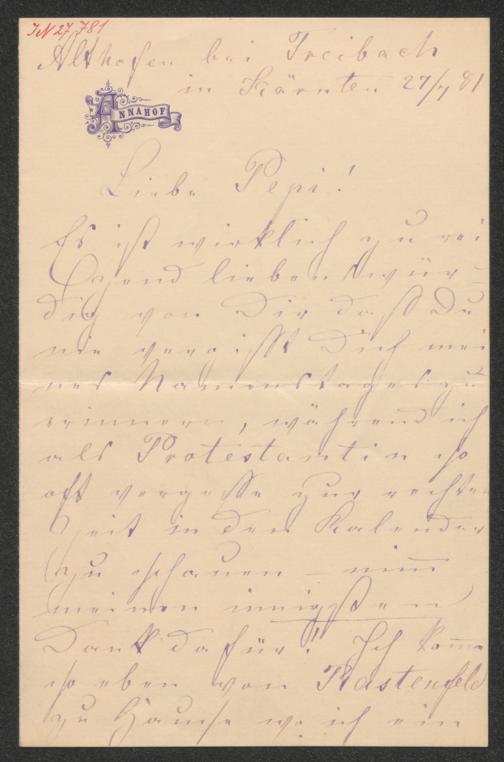 IN 27.781
Althofen bei Treibach
in Kärnten 27/7 81
ANNAHOF
Liebe Pepi!
Es ist wirklich zu rei
tzend liebenswür-
dig von Dir daß Du
nie vergißt Dich mei
nes Namenstages zu
erinnern, während ich
als Protestantin so
oft vergesse zur rechten
Zeit in den Kalender
zu schauen – nim̅
meinen innigsten
Dank dafür! Ich kom̅e
so eben von Kastenfeld
zu Hause wo ich ein